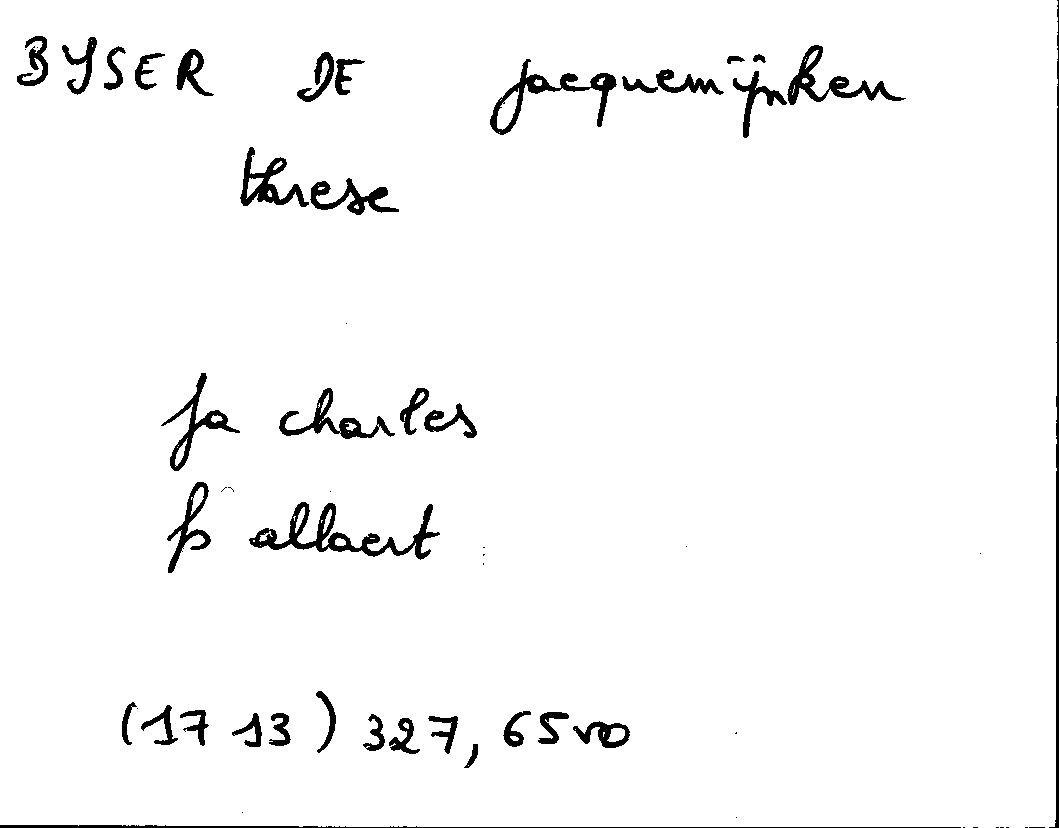 BYSER DE jacquemÿnken
therese
fa charles
fs allaert
(1713) 327, 65vo